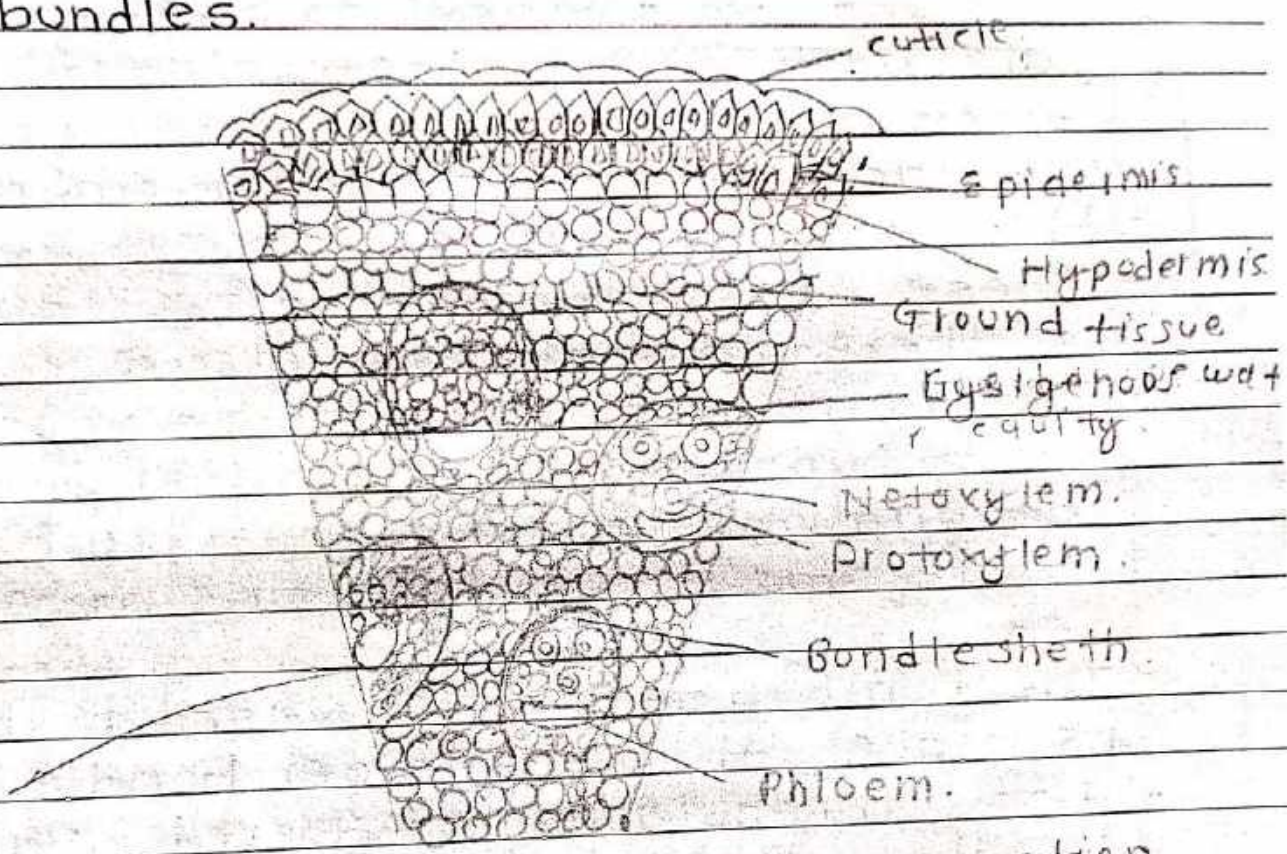 bundles.
cuticle
Epidermis
Hypodermis
Ground tissue
Lysigenoos wat
r cauity.
Netoxylem.
Protoxylem.
Bundle sheth
Phloem.